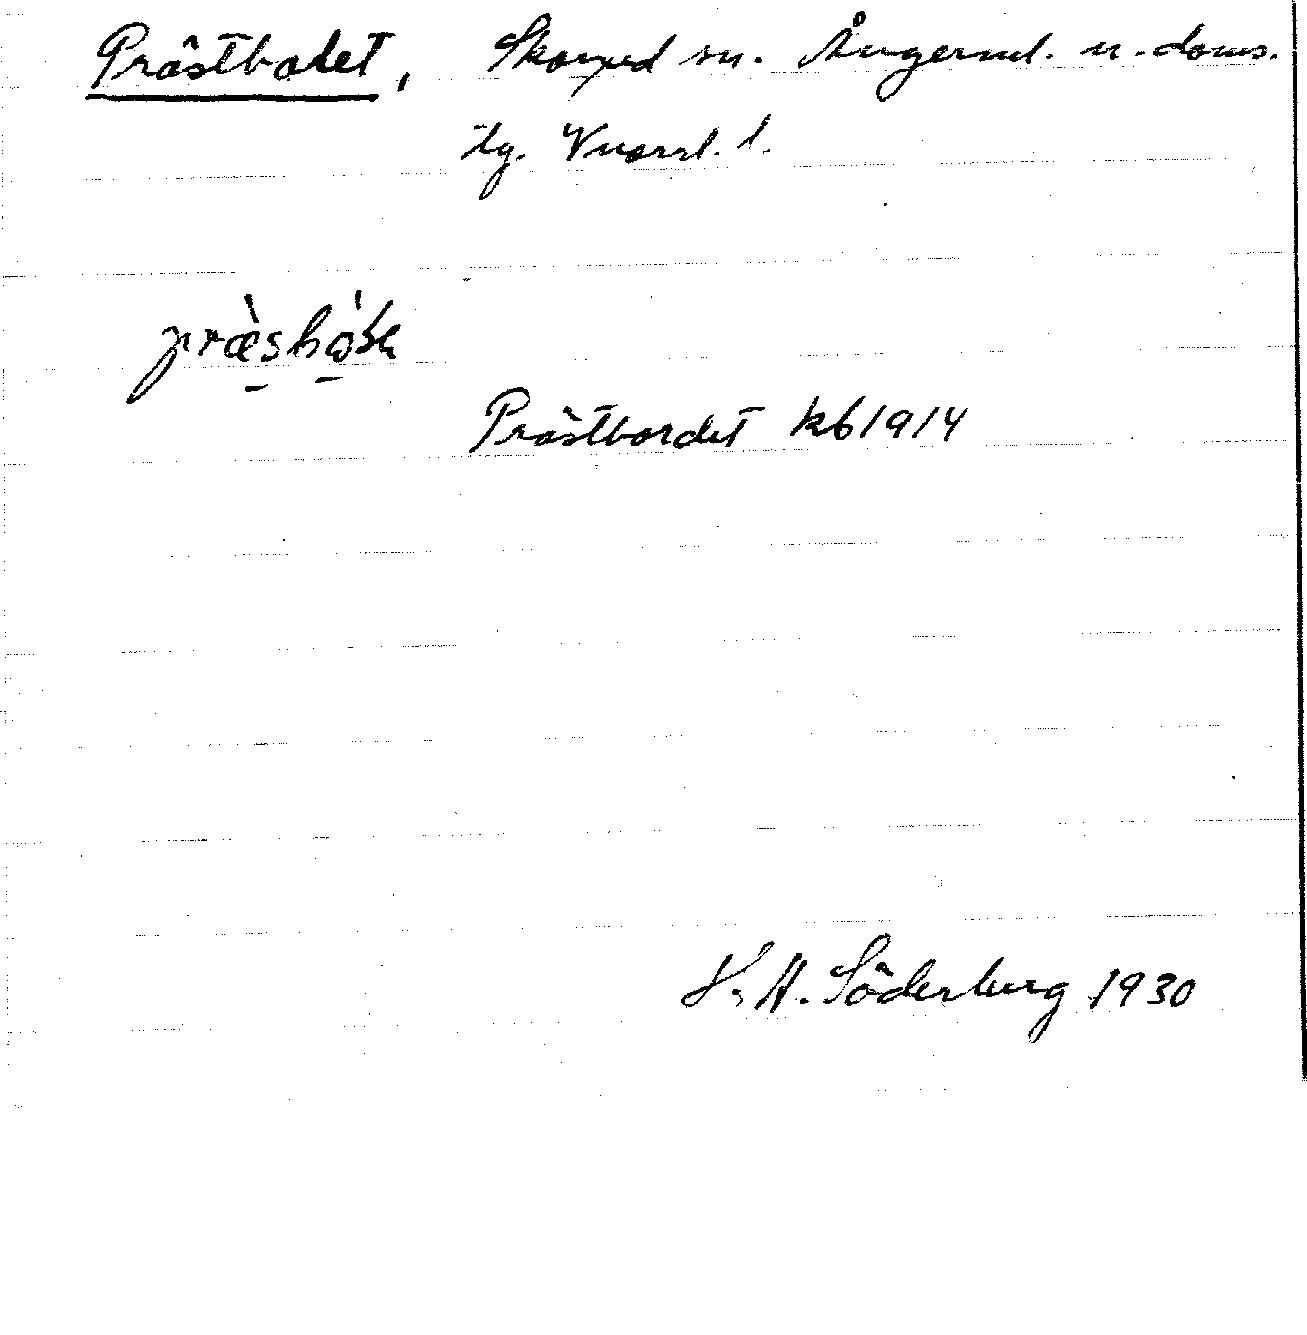 Prästbolet, Skorped sn. Ångerml. n. doms.
tg. Vnorrl. l.
Prästbordet kb 1914
V. A. Söderberg 1930